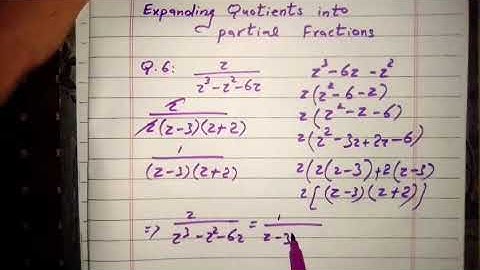 Expanding Quotients into
partial Fractions
Q.6: z / (z³-z²-6z)
z / z(z-3)(z+2)
1 / (z-3)(z+2)
z³-6z -z²
z(z²-6-z)
z(z²-z-6)
z(z²-3z+2z-6)
z(z(z-3)+2(z-3)
z[(z-3)(z+2)]
=> z / (z³-z²-6z) = 1 / z-3